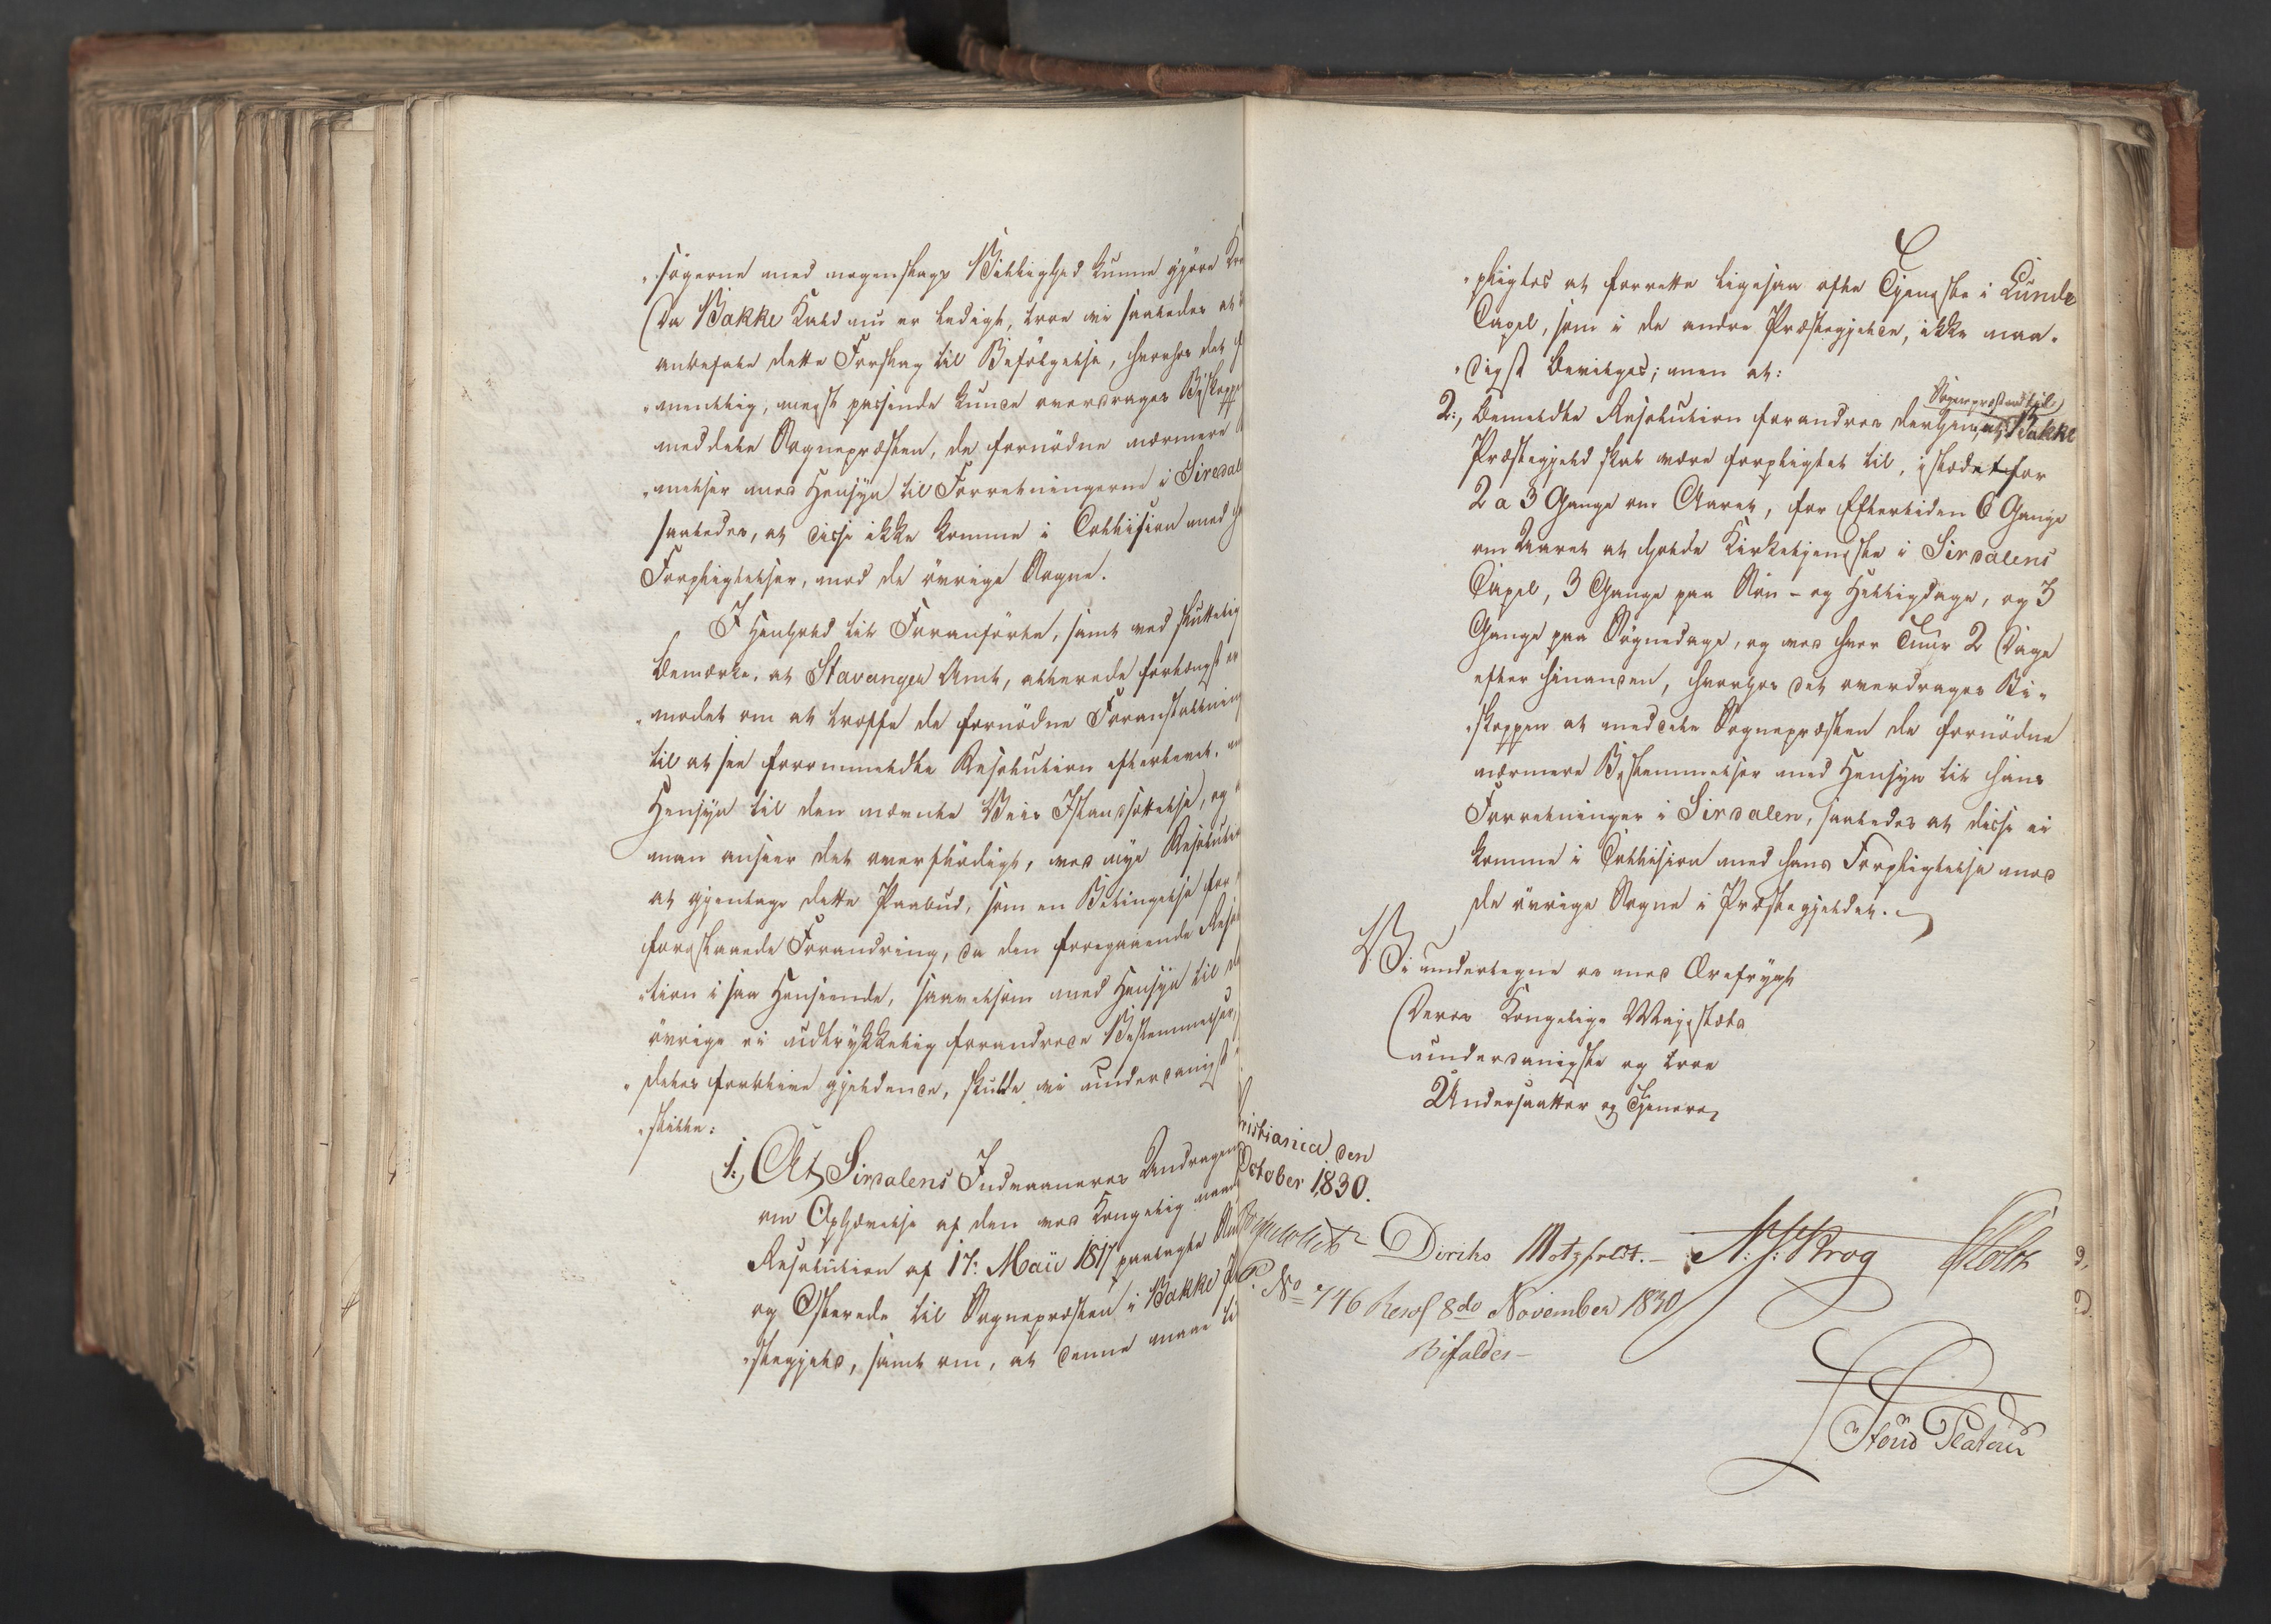 "søgerne med nogenslags Billighed kunne gjøre
Da Bakke Kald nu er ledigt, troe vi saaledes at
anbefale dette Forslag til Befølgelse, hvorhos det
"mentlig, meest passende kunde overdrages
meddele Sognepræsten, de fornödne nærmere
"melser med Hensyn til Forretningerne i Siredal
saaledes, at disse ikke komme i Collision med
Forpligtelser, mod de övrige Sogne.
I Henhold til Foranførte, samt ved sluttelig
bemærke, at Stavanger Amt, allerede forlængst er
"modet om at træffe de fornödne Foranstaltning
til at see forommeldte Resolution efterlevet,
Hensyn til den nævnte Veis Istandsættelse, og
man anseer det overflödigt, ved nye
at gjentage dette Paabud, som en Betingelse for
foreslaaede Forandring, da den foregaaende
"tion i saa Henseende, saavelsom med Hensyn til
övrige ei udtrykkelig forandrede Bestemmelser,
"deles forblive gjeldende, skulle vi underdanigst
"stille:
1:, At Sirdalens Indvaaneres Andragen
om Ophævelse af den ved Kongelig
Resolution af 17: Maii 1817 paalagte
og Osterede til Sognepræsten i Bakke
"stegjeld, samt om, at denne maae
"pligtes at forrette ligesaa ofte Tjeneste i Lunde
Capel, som i de andre Præstegjelde, ikke naa-
"digst bevilges; men at:
2:, bemeldte Resolution forandres derhen, at Sognepræsten til Bakke
Præstegjeld skal være forpligtet til, istedetfor
2 a 3 Gange om Aaret, for Eftertiden 6 Gange
om Aaret at holde Kirketjeneste i Sirdalens
Capel, 3 Gange paa Søn- og Helligdage, og 3
Gange paa Søgnedage, og ved hver Tuur 2 Dage
efter hinanden, hvorhos det overdrages Bi-
"skoppen at meddele Sognepræsten de fornödne
nærmere Bestemmelser med Hensyn til hans
Forretninger i Sirdalen, saaledes at disse ei
komme i Collision med hans Forpligtelse mod
de övrige Sogne i Præstegjeldet.
Vi undertegne os med Ærefrygt
Deres Kongelige Majestæts
underdanigste og troe
Undersaatter og Tjenere,
ristiania, den
October 1830.
Diriks Motzfeldt. N. J: Krog
P. No 746 Resol 8de November 1830
Bifaldes